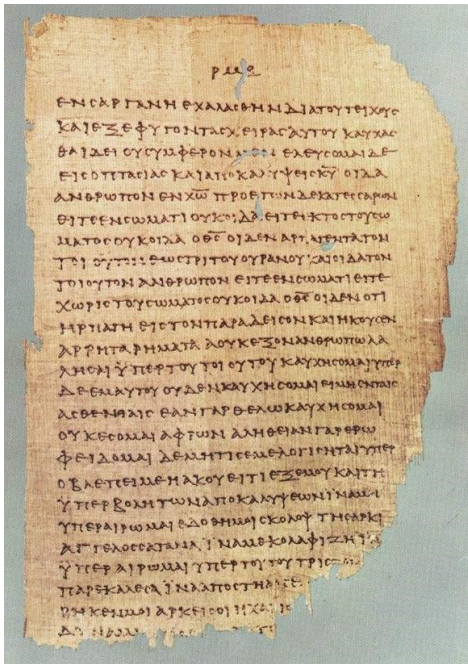 ΡΜΘ
ΕΝ ΣΑΡΓΑΝΗ ΕΧΑΛΑΣΘΗΝ ΔΙΑ ΤΟΥ ΤΕΙΧΟΥΣ
ΚΑΙ ΕΞΕΦΥΓΟΝ ΤΑΣ ΧΕΙΡΑΣ ΑΥΤΟΥ ΚΑΥΧΑΣ
ΘΑΙ ΔΕΙ ΟΥ ΣΥΜΦΕΡΟΝ ΕΛΕΥΣΟΜΑΙ ΔΕ
ΕΙΣ ΟΠΤΑΣΙΑΣ ΚΑΙ ΑΠΟΚΑΛΥΨΕΙΣ ΚΥ ΟΙΔΑ
ΑΝΘΡΩΠΟΝ ΕΝ ΧΩ ΠΡΟ ΕΤΩΝ ΔΕΚΑΤΕΣΣΑΡΩΝ
ΕΙΤΕ ΕΝ ΣΩΜΑΤΙ ΟΥΚ ΟΙΔΑ ΕΙΤΕ ΕΚΤΟΣ ΤΟΥ ΣΩ
ΜΑΤΟΣ ΟΥΚ ΟΙΔΑ Ο ΘΣ ΟΙΔΕΝ ΑΡΠΑΓΕΝΤΑ ΤΟΝ
ΤΟΙΟΥΤΟΝ ΕΩΣ ΤΡΙΤΟΥ ΟΥΡΑΝΟΥ ΚΑΙ ΟΙΔΑ ΤΟΝ
ΤΟΙΟΥΤΟΝ ΑΝΘΡΩΠΟΝ ΕΙΤΕ ΕΝ ΣΩΜΑΤΙ ΕΙΤΕ
ΧΩΡΙΣ ΤΟΥ ΣΩΜΑΤΟΣ ΟΥΚ ΟΙΔΑ Ο ΘΣ ΟΙΔΕΝ ΟΤΙ
ΗΡΠΑΓΗ ΕΙΣ ΤΟΝ ΠΑΡΑΔΕΙΣΟΝ ΚΑΙ ΗΚΟΥΣΕΝ
ΑΡΡΗΤΑ ΡΗΜΑΤΑ Α ΟΥΚ ΕΞΟΝ ΑΝΘΡΩΠΩ ΛΑ
ΛΗΣΑΙ ΫΠΕΡ ΤΟΥ ΤΟΙΟΥΤΟΥ ΚΑΥΧΗΣΟΜΑΙ ΥΠΕΡ
ΔΕ ΕΜΑΥΤΟΥ ΟΥΔΕΝ ΚΑΥΧΗΣΟΜΑΙ ΕΙ ΜΗ ΕΝ ΤΑΙΣ
ΑΣΘΕΝΙΑΙΣ ΕΑΝ ΓΑΡ ΘΕΛΩ ΚΑΥΧΗΣΟΜΑΙ
ΟΥΚ ΕΣΟΜΑΙ ΑΦΡΩΝ ΑΛΗΘΕΙΑΝ ΓΑΡ ΕΡΩ
ΦΕΙΔΟΜΑΙ ΔΕ ΜΗ ΤΙΣ ΕΜΕ ΛΟΓΙΣΗΤΑΙ ΥΠΕΡ
Ο ΒΛΕΠΕΙ ΜΕ Η ΑΚΟΥΕΙ ΤΙ ΕΞ ΕΜΟΥ ΚΑΙ ΤΗ
ΫΠΕΡΒΟΛΗ ΤΩΝ ΑΠΟΚΑΛΥΨΕΩΝ ΙΝΑ ΜΗ
ΥΠΕΡΑΙΡΩΜΑΙ ΕΔΟΘΗ ΜΟΙ ΣΚΟΛΟΨ ΤΗ ΣΑΡΚΙ
ΑΓΓΕΛΟΣ ΣΑΤΑΝΑ ΪΝΑ ΜΕ ΚΟΛΑΦΙΖΗ
ΫΠΕΡΑΙΡΩΜΑΙ ΥΠΕΡ ΤΟΥΤΟΥ ΤΡΙΣ
ΠΑΡΕΚΑΛΕΣΑ ΪΝΑ ΑΠΟΣΤΗ
ΡΗΚΕΝ ΜΟΙ ΑΡΚΕΙ ΣΟΙ Η ΧΑΡΙΣ